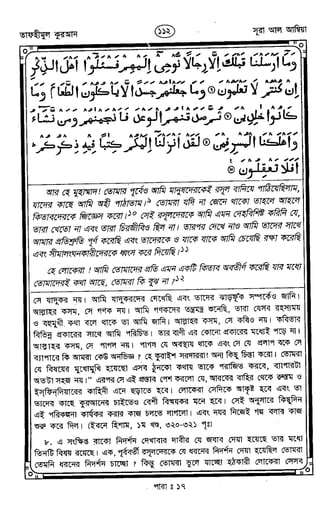 তাফহীমুল কুরআন
১১২
সূরা আল আম্বিয়া
وَمَا أَرْسَلْنَا قَبْلَكَ إِلَّا رِجَالًا نُّوحِي إِلَيْهِمْ فَسْئَلُوا أَهْلَ الذِّكْرِ
إِن كُنتُمْ لَا تَعْلَمُونَ ۝ وَمَا جَعَلْنَاهُمْ جَسَدًا لَّا يَأْكُلُونَ الطَّعَامَ وَمَا
كَانُوا خَالِدِينَ ۝ ثُمَّ صَدَقْنَاهُمُ الْوَعْدَ فَأَنجَيْنَاهُمْ وَمَن نَّشَاءُ
وَأَهْلَكْنَا الْمُسْرِفِينَ ۝ لَقَدْ أَنزَلْنَا إِلَيْكُمْ كِتَابًا فِيهِ ذِكْرُكُمْ
أَفَلَا تَعْقِلُونَ ۝
আর হে মুহাম্মাদ! তোমার পূর্বেও আমি মানুষদেরকেই রসূল বানিয়ে পাঠিয়েছিলাম,
যাদের কাছে আমি অহী পাঠাতাম।৯ তোমরা যদি না জেনে থাকো তাহলে আহলে
কিতাবদেরকে জিজ্ঞেস করো।১০ সেই রসূলদেরকে আমি এমন দেহবিশিষ্ট করিনি যে,
তারা খেতো না এবং তারা চিরজীবিও ছিল না। তারপর দেখে নাও আমি তাদের সাথে
আমার প্রতিশ্রুতি পূর্ণ করেছি এবং তাদেরকে ও যাকে যাকে আমি চেয়েছি রক্ষা করেছি
এবং সীমালংঘনকারীদেরকে ধ্বংস করে দিয়েছি।১১
হে লোকেরা! আমি তোমাদের প্রতি এমন একটি কিতাব অবতীর্ণ করেছি যার মধ্যে
তোমাদেরই কথা আছে, তোমরা কি বুঝ না?১২
সে যাদুকর নয়। আমি যাদুকরদের দেখেছি এবং তাদের ঝাড়ফুঁক সম্পর্কেও জানি।
আল্লাহর কসম, সে গণক নয়। আমি গণকদের তন্ত্রমন্ত্র শুনেছি, তারা যেসব রহস্যময়
ও বহুমুখী কথা বলে থাকে তা আমি জানি। আল্লাহর কসম, সে কবিও নয়। কবিতার
বিভিন্ন প্রকারের সাথে আমি পরিচিত। তার বাণী এর কোনো প্রকারের মধ্যেই পড়ে না।
আল্লাহর কসম, সে পাগল নয়। পাগল যে অবস্থায় থাকে এবং সে যে প্রলাপ বকে সে
ব্যাপারে কি আমরা কেউ অনভিজ্ঞ? হে কুরাইশ সরদাররা! অন্য কিছু চিন্তা করো। তোমরা
যে বিষয়ের মুখোমুখি হয়েছো এসব ঠুনকো কথায় তাকে পরাজিত করবে, ব্যাপারটা
অতটা সহজ নয়।" এরপর সে এই প্রস্তাব পেশ করলো যে, আরবের বাহির থেকে রুস্তম ও
ইসফিন্দিয়ারের কাহিনী এনে ছড়াতে হবে। লোকেরা সেদিকে আকৃষ্ট হবে এবং তা
তাদের কাছে কুরআনের চাইতেও বেশী বিস্ময়কর মনে হবে। সেই অনুসারে কিছুদিন
এই পরিকল্পনা কার্যকর করার কাজ চলতে লাগলো। এবং নযর নিজেই গল্প বলার কাজ
শুরু করে দিল। (ইবনে হিশাম, ১ম খণ্ড, ৩২০-৩২১ পৃঃ)
৮. এ সংক্ষিপ্ত বাক্যে নিদর্শন দেখাবার দাবীর যে জবাব দেয়া হয়েছে তার মধ্যে
তিনটি বিষয় রয়েছে। এক, পূর্ববর্তী রসূলদেরকে যে ধরনের নিদর্শন দেয়া হয়েছিল তোমরা
তেমনি ধরনের নিদর্শন চাচ্ছো? কিন্তু তোমরা ভুলে যাচ্ছো হঠকারী লোকেরা সেসব
পারা : ১৭